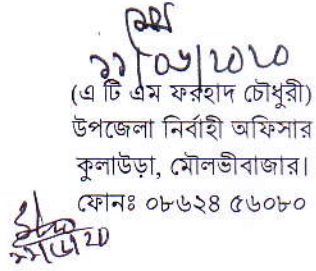 (এ টি এম ফরহাদ চৌধুরী)
উপজেলা নির্বাহী অফিসার
কুলাউড়া, মৌলভীবাজার।
ফোনঃ ০৮৬২৪ ৫৬০৮০